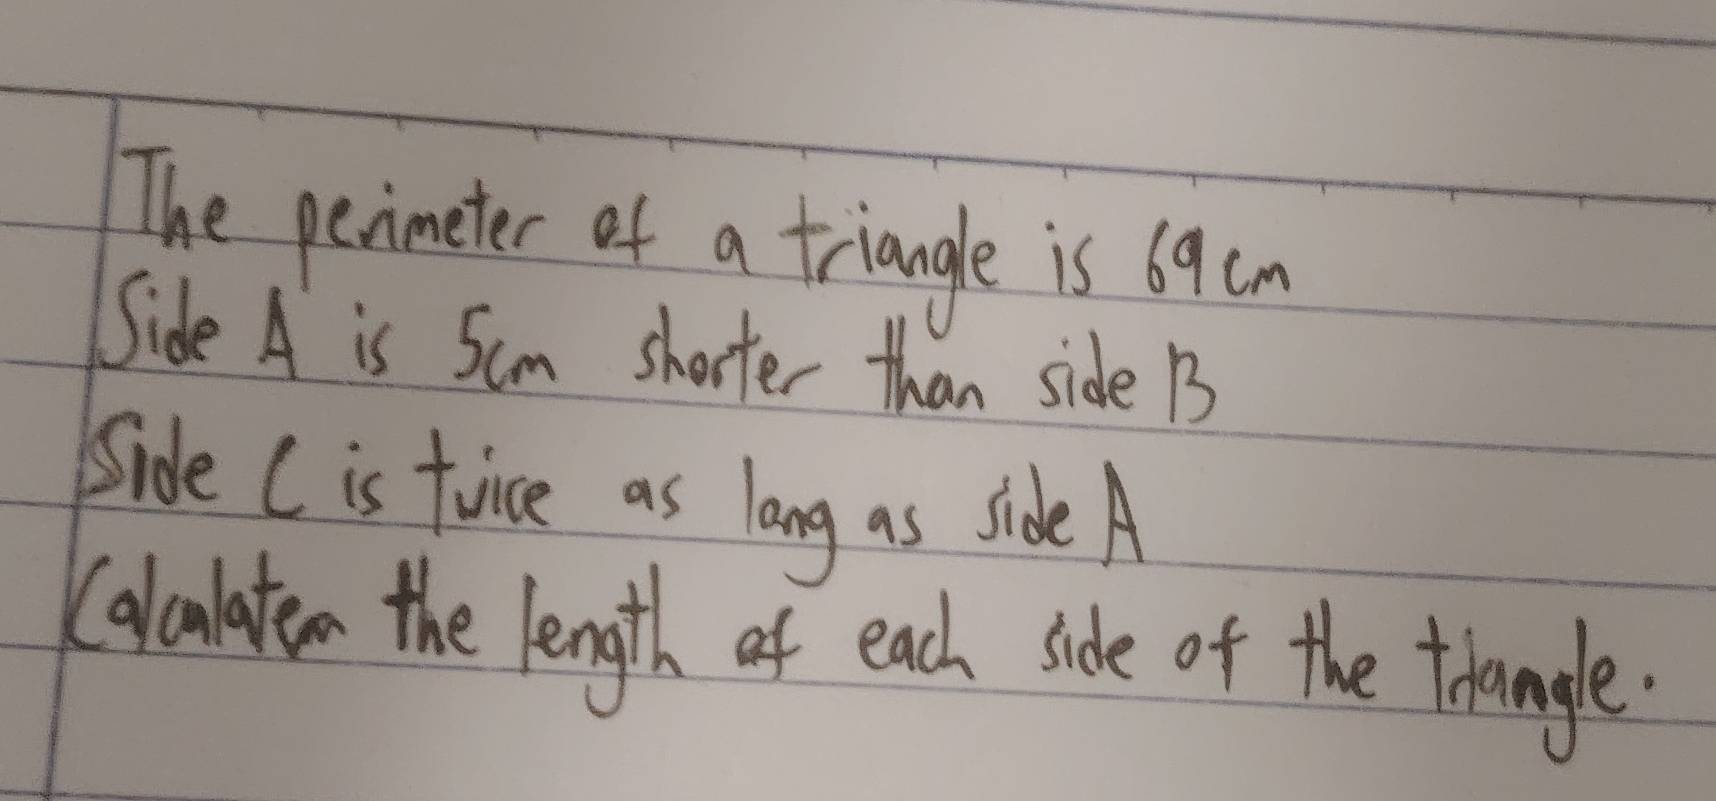 The perimeter of a triangle is 69cm
Side A is 5cm shorter than side B
Side C is twice as long as side A
Calculatem the length of each side of the triangle.